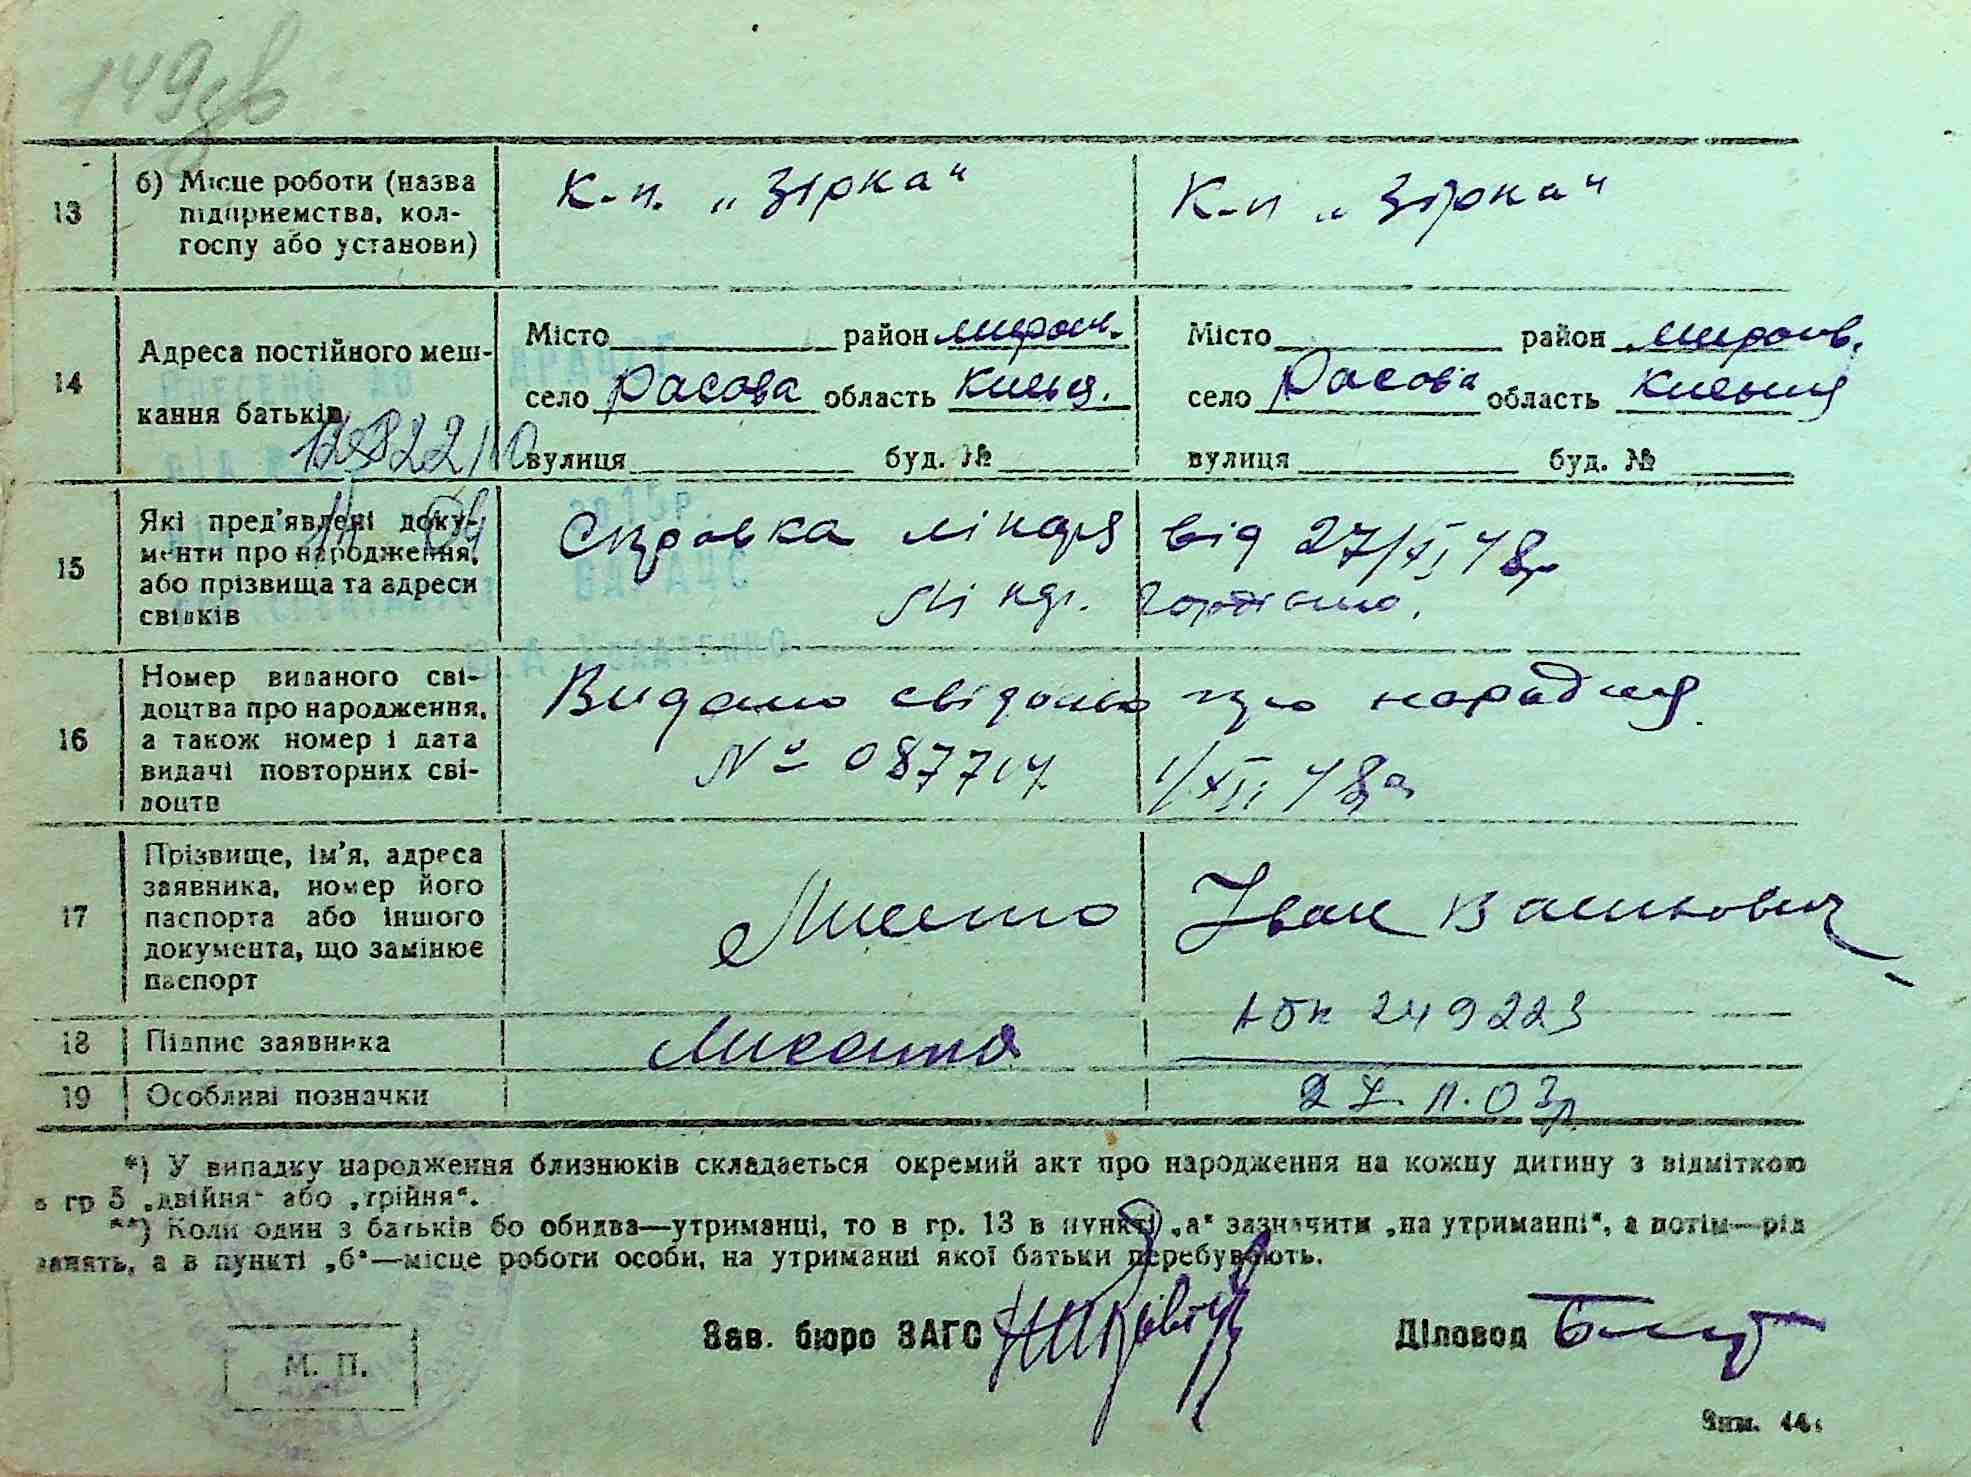 149зв
13 б) Місце роботи (назва підприємства, колгоспу або установи) К-п. „Зірка“ К-п „Зірка“
14 Адреса постійного мешкання батьків
Місто район Мирон. Місто район Миронів.
село Росава область Київсь. село Росава область Київська
вулиця буд. № вулиця буд. №
15 Які пред'явлені документи про народження, або прізвища та адреси свідків
Справка лікаря від 27/XI 48р
Лікар.
16 Номер виданого свідоцтва про народження, а також номер і дата видачі повторних свідоцтв
Видано свідоцтво про народження
№ 087714 1/XII 48р
17 Прізвище, ім'я, адреса заявника, номер його паспорта або іншого документа, що замінює паспорт
Іван Васильович
249223
18 Підпис заявника
19 Особливі позначки
*) У випадку народження близнюків складається окремий акт про народження на кожну дитину з відміткою
в гр 5 „двійня“ або „трійня“.
**) Коли один з батьків бо обидва—утриманці, то в гр. 13 в пункті „а“ зазначити „на утриманні“, а потім—рід
занять, а в пункті „б“—місце роботи особи, на утриманні якої батьки перебувають.
Зав. бюро ЗАГС Діловод
М. П.
Зам. 44